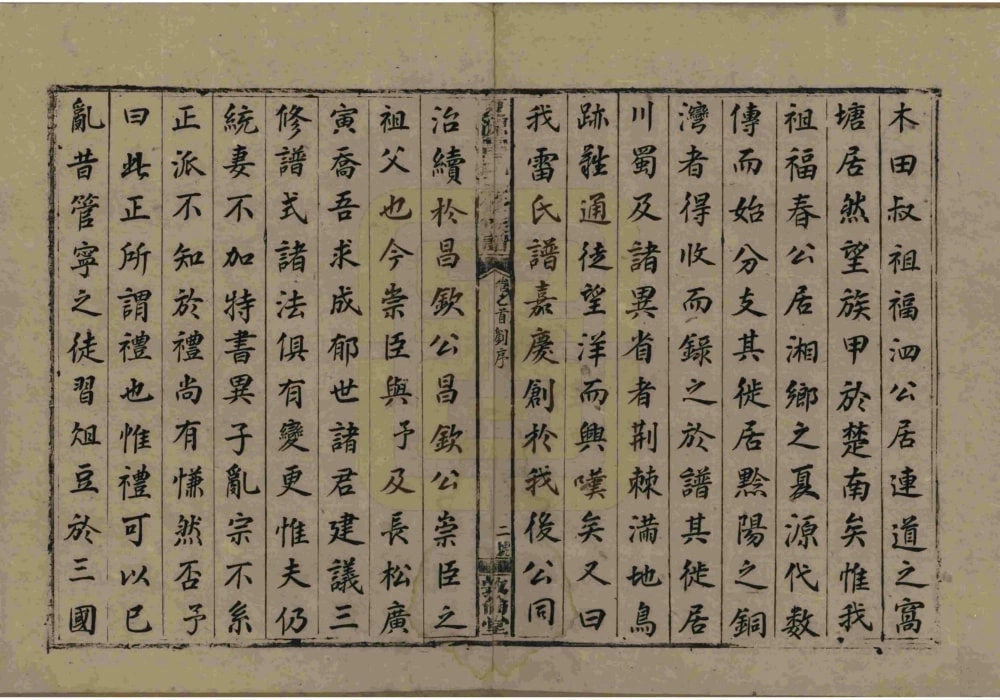 木田叔祖福泗公居連道之窩
塘居然望族甲於楚南矣惟我
祖福春公居湘鄉之夏源代数
傳而始分支其徙居黔陽之銅
灣者得收而錄之於譜其徙居
川蜀及諸異省者荆棘滿地鳥
跡難通徒望洋而興嘆矣又曰
我雷氏譜嘉慶創於我後公同
卷之首刱序
二
敦倫堂
治續於昌欽公昌欽公崇臣之
祖父也今崇臣與予及長松廣
寅喬吾求成郁世諸君建議三
修譜式諸法俱有變更惟夫仍
統妻不加特書異子亂宗不系
正派不知於禮尚有慊然否予
曰此正所謂禮也惟禮可以已
亂昔管寧之徒習俎豆於三國